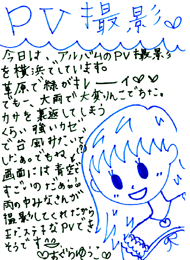 PV撮影♡
今日は、アルバムのPV撮影♡
を横浜でしています。
草原で緑がキレーーイ♡♡
でも、大雨で大変なんこでちた。
カサを裏返してしまう
くらい強いカゼ
で台風みたいで
したぁ。でもね
画面には青空
すごいのだぁ
雨の中みなさんが
撮影してくれたから
ステキなPVでき
そうです
♡おぐらゆうこ♡